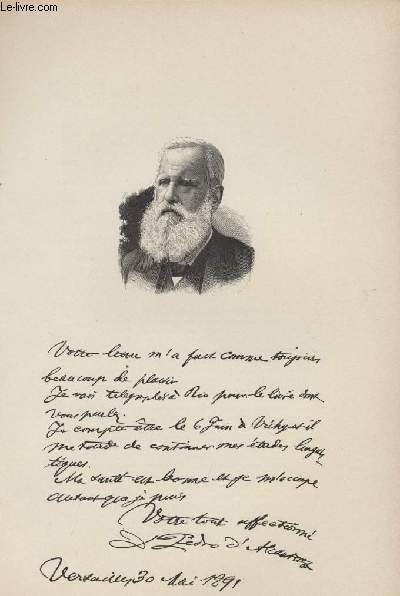 Le-livre.com
Votre lettre m'a fait comme toujours
beaucoup de plaisir
Je vais télégraphier à Rio pour le livre dont
vous parlez.
Je compte être le 6 Juin à Vichy et il
me tarde de continuer mes études linguis-
tiques.
Ma santé est bonne et je m'occupe
autant que je puis
Votre tout affectionné
D. Pedro d'Alcantara
Versailles 30 Mai 1891